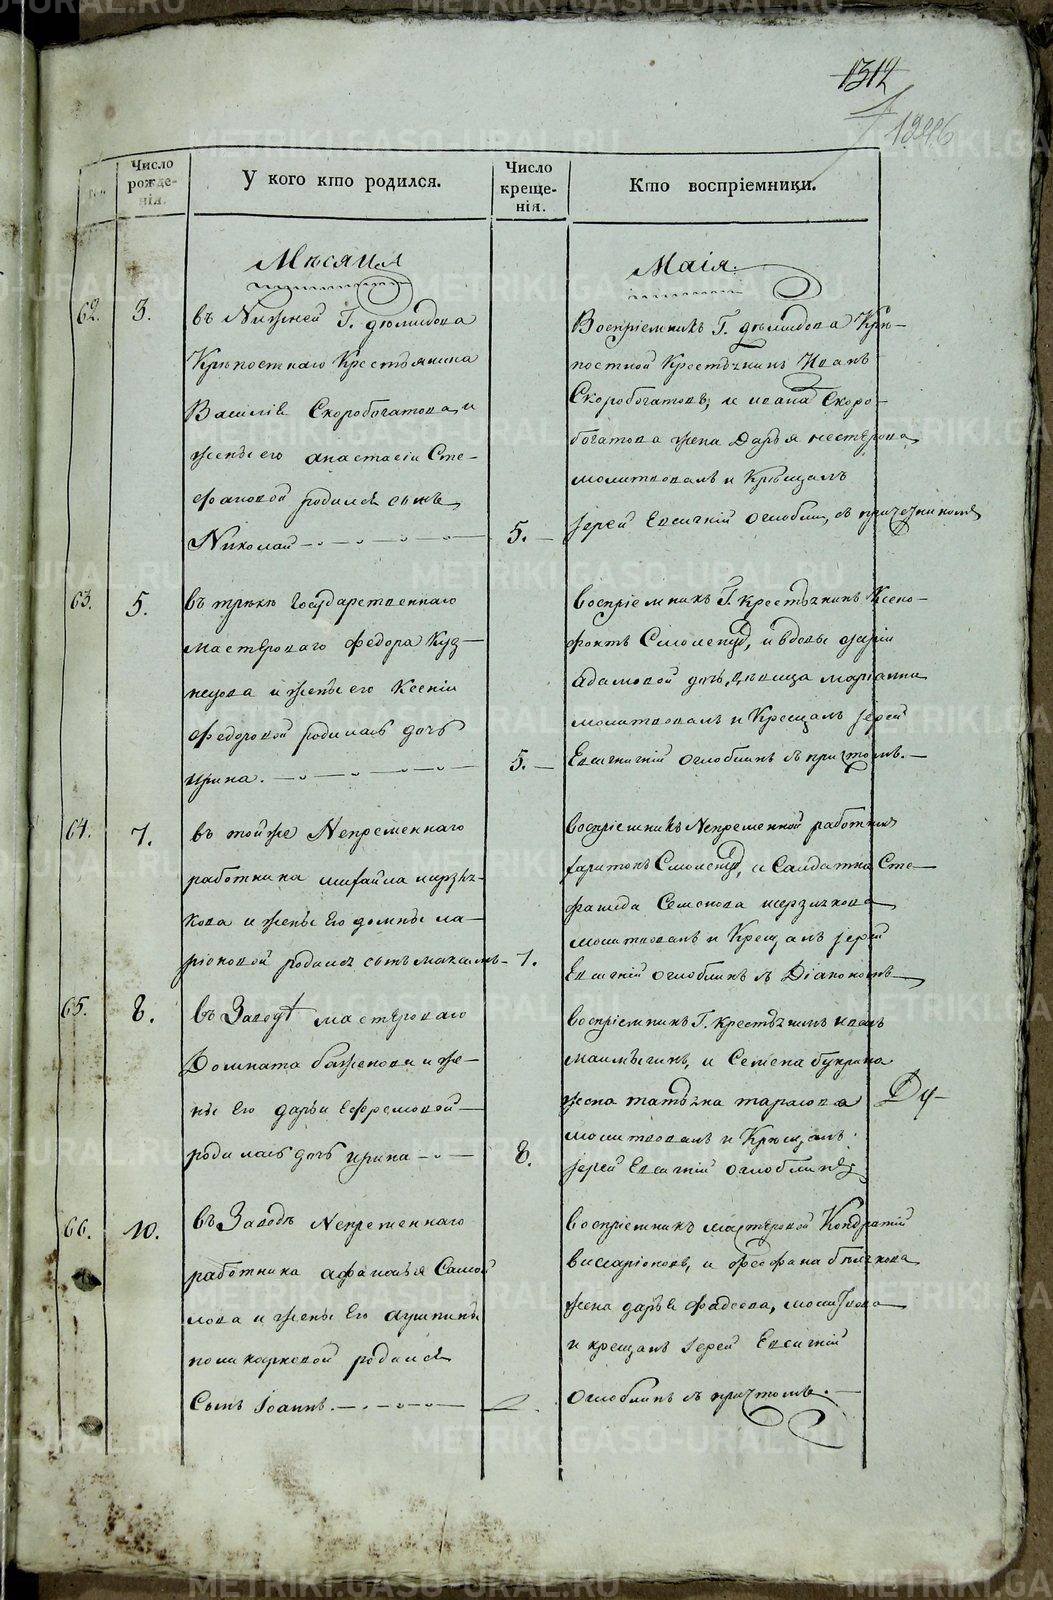 1312
1226
Число рожде-нія.
У кого кто родился.
Число креще-нія.
Кто воспріемники.
Мѣсяца
Маія.
62. 3.
въ Нижней Г. Демидова
Крѣпостнаго Крестьянина
Василія Скоробогатова и
жены его Анастасіи Сте-
фановой родился сынъ
Николай
5.
Воспріемникъ Г. Демидова Крѣ-
постной Крестьянинъ Иванъ
Скоробогатовъ, и Ивана Скоро-
богатова жена Дарья Нестерова
молитвовалъ и Крещалъ
Іерей Евсигній Оглоблин, съ причетникомъ
63. 5.
въ Государственнаго
мастероваго Федора Куз-
нецова и жены его Ксеніи
Федоровой родилась дочь
Ирина.
5.
Воспріемникъ Г. Крестьянинъ Ксено-
фонтъ и вдовы
Адамовой дочь, девица Маріанна
молитвовалъ и Крещалъ Іерей
Евсигній Оглоблинъ съ причтомъ.
64. 7.
въ той же Непременнаго
работника Михайла Мирзѣ-
кова и жены Его Домны Ла-
ріоновой родился сынъ Максимъ
7.
Воспріемникъ Непременной работникъ
Харитонъ и Салдатка Сте-
фанида Семенова
молитвовалъ и Крещалъ Іерей
Евсигній Оглоблинъ съ Діакономъ
65. 8.
въ Заводѣ мастероваго
Доммата Баженова и же-
ны Его Дарьи Ефремовой
родилась дочь Ирина
8.
Воспріемникъ Г. Крестьянинъ Иванъ
и Семена Букрина
жена Татьяна Тарасова
молитвовалъ и Крещалъ
Іерей Евсигній Оглоблинъ
66. 10.
въ Заводѣ Непременнаго
работника Афанасья Самой
лова и жены Его
поликарповой родился
Сынъ Іоаннъ.
Воспріемникъ мастеровой Кондратій
Висаріоновъ, и Феофана Бѣлькова
жена Дарья Фадеева, молитвова
и крещалъ Іерей Евсигній
Оглоблинъ съ причтомъ.
METRIKI.GASO-URAL.RU